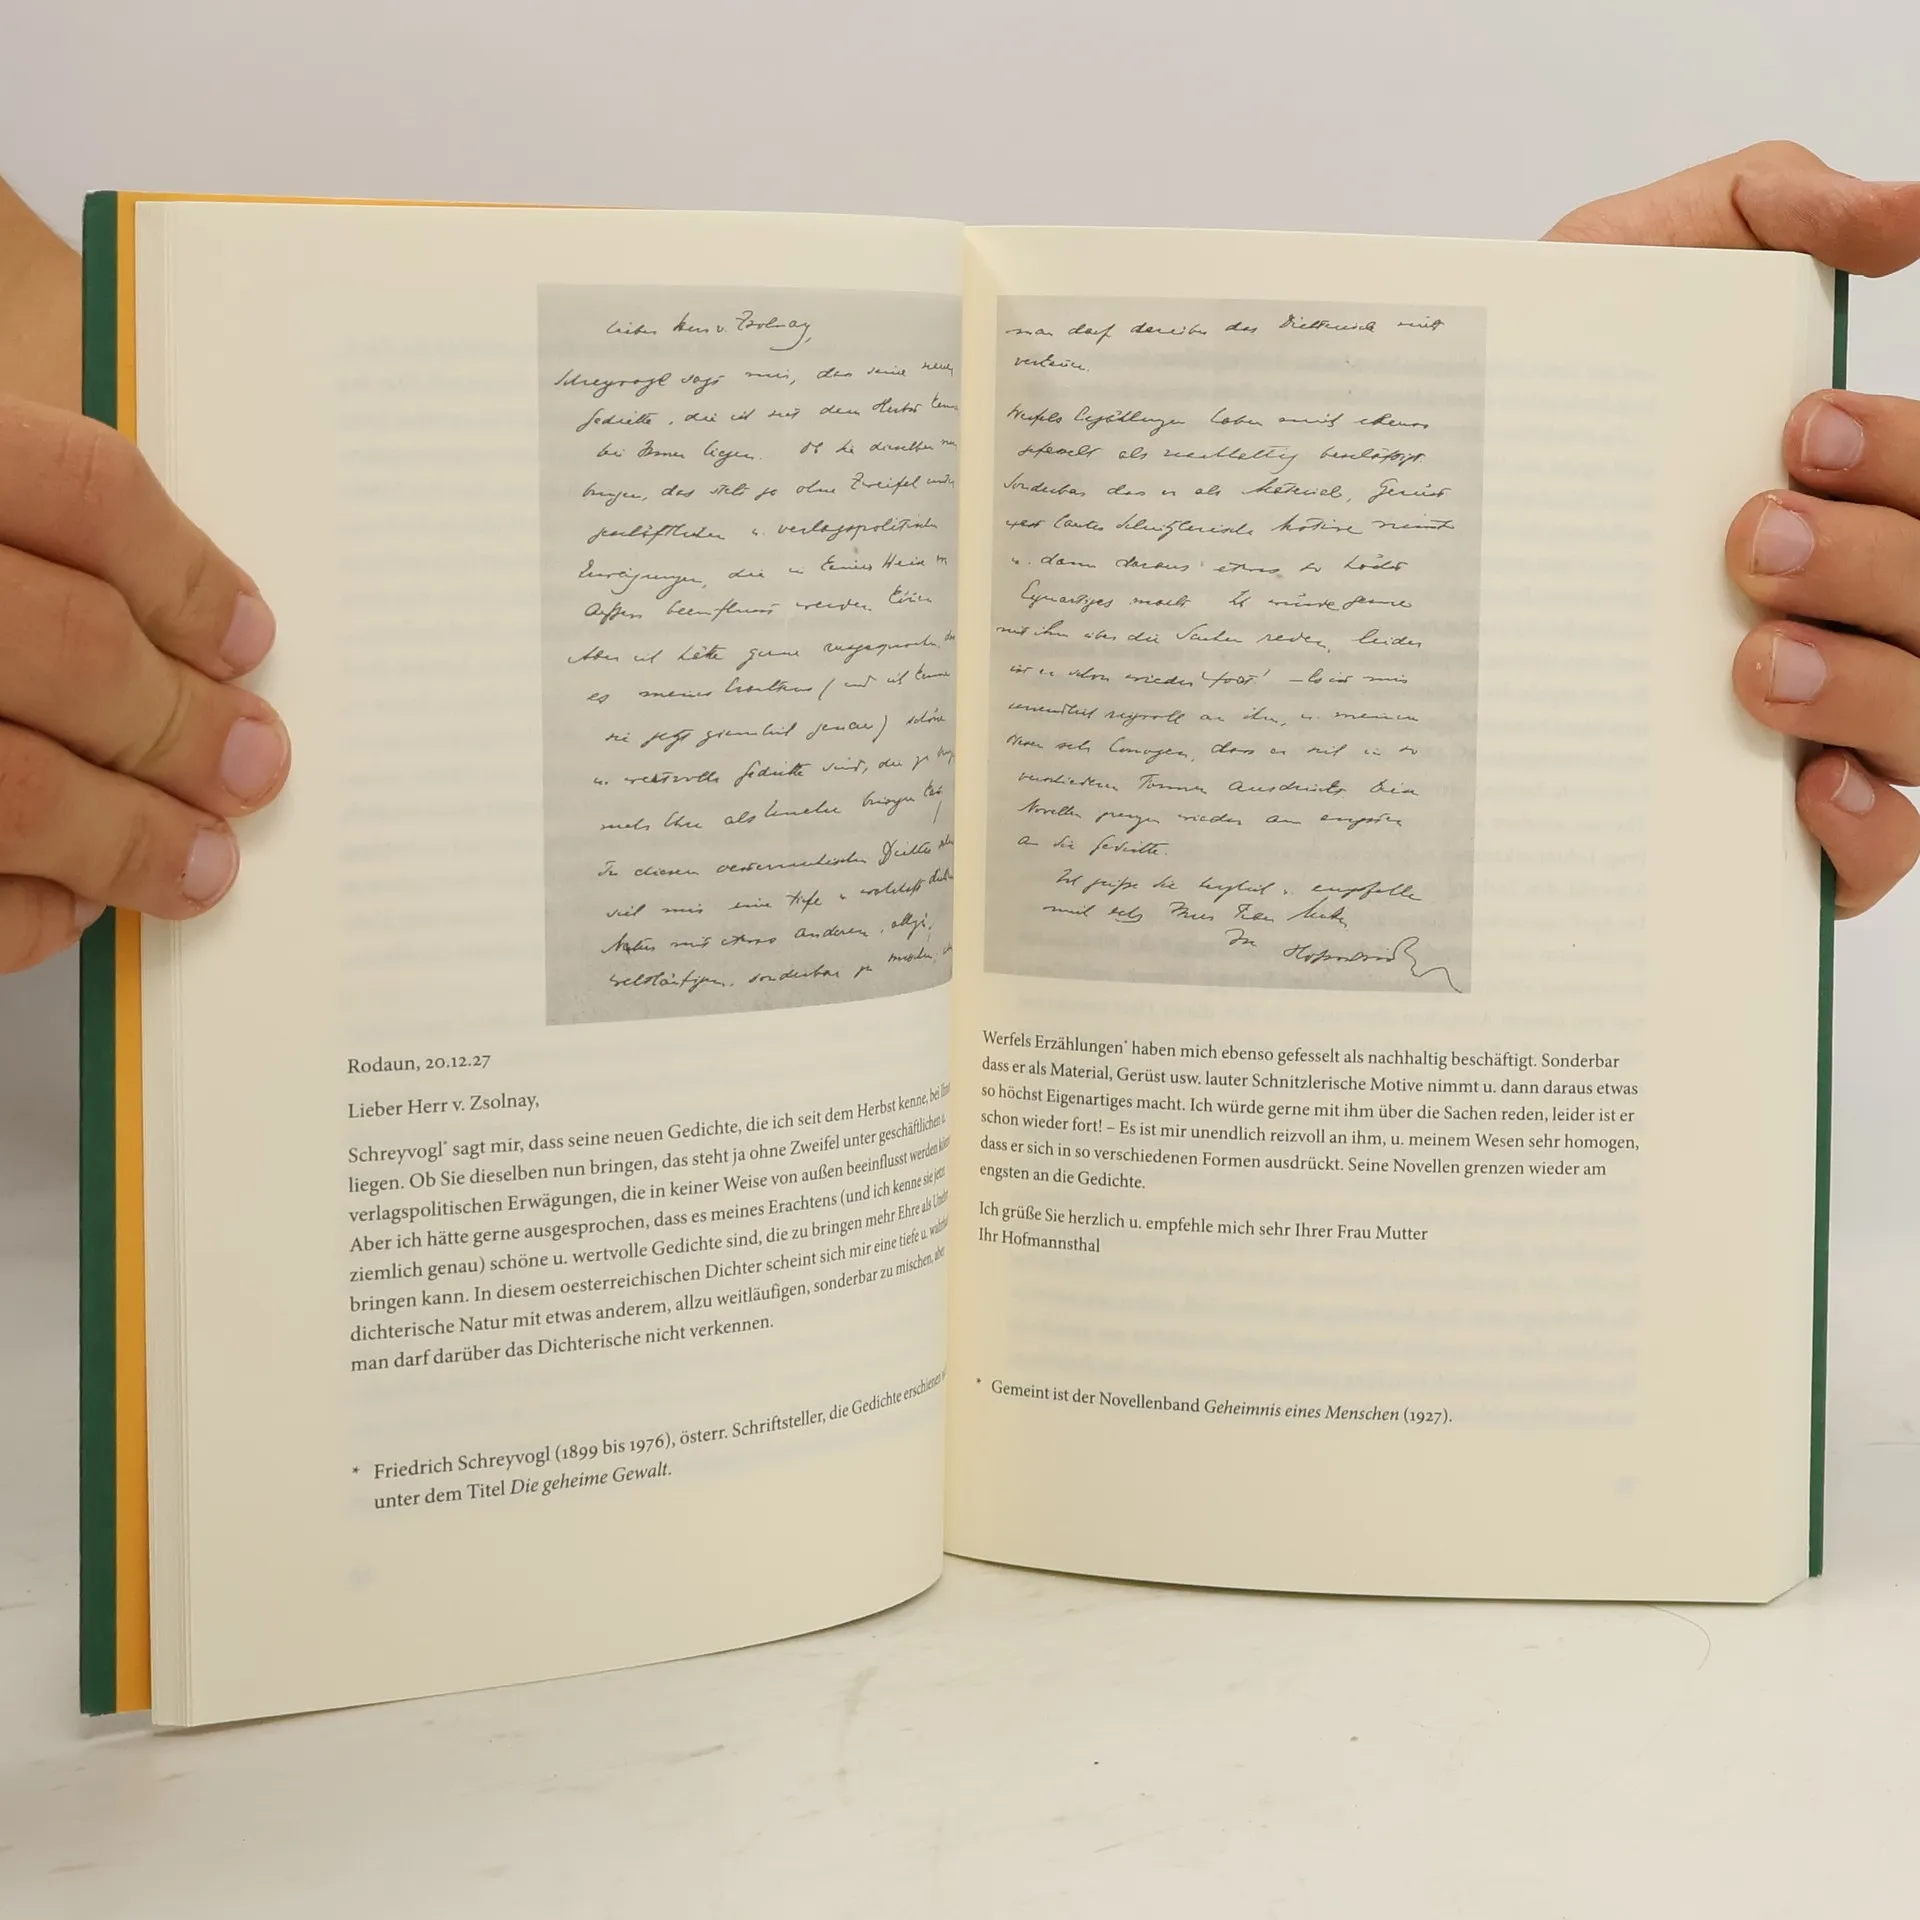 Lieber Herr v. Zsolnay,
Schreyvogl sagt mir, dass seine neuen
Gedichte, die ich seit dem Herbst kenne
bei Ihnen liegen. Ob Sie dieselben nun
bringen, das steht ja ohne Zweifel unter
geschäftlichen u. verlagspolitischen
Erwägungen, die in keiner Weise von
Außen beeinflusst werden können
Aber ich hätte gerne ausgesprochen, dass
es meines Erachtens (und ich kenne
sie jetzt ziemlich genau) schöne
u. wertvolle Gedichte sind, die zu bringen
mehr Ehre als Unehre bringen kann
In diesem oesterreichischen Dichter scheint
sich mir eine tiefe u. wahrhaft dichterische
Natur mit etwas anderem, allzu
weitläufigen, sonderbar zu mischen, aber
Rodaun, 20.12.27
Lieber Herr v. Zsolnay,
Schreyvogl* sagt mir, dass seine neuen Gedichte, die ich seit dem Herbst kenne, bei Ihnen
liegen. Ob Sie dieselben nun bringen, das steht ja ohne Zweifel unter geschäftlichen u.
verlagspolitischen Erwägungen, die in keiner Weise von außen beeinflusst werden
Aber ich hätte gerne ausgesprochen, dass es meines Erachtens (und ich kenne sie jetzt
ziemlich genau) schöne u. wertvolle Gedichte sind, die zu bringen mehr Ehre als
bringen kann. In diesem oesterreichischen Dichter scheint sich mir eine tiefe u.
dichterische Natur mit etwas anderem, allzu weitläufigen, sonderbar zu mischen, aber
man darf darüber das Dichterische nicht verkennen.
* Friedrich Schreyvogl (1899 bis 1976), österr. Schriftsteller, die Gedichte erschienen
unter dem Titel Die geheime Gewalt.
man darf darüber das Dichterische nicht
verkennen.
Werfels Erzählungen haben mich ebenso
gefesselt als nachhaltig beschäftigt.
Sonderbar dass er als Material, Gerüst
usw. lauter Schnitzlerische Motive nimmt
u. dann daraus etwas so höchst
Eigenartiges macht. Ich würde gerne
mit ihm über die Sachen reden, leider
ist er schon wieder fort! – Es ist mir
unendlich reizvoll an ihm, u. meinem
Wesen sehr homogen, dass er sich in so
verschiedenen Formen ausdrückt. Seine
Novellen grenzen wieder am engsten
an die Gedichte.
Ich grüße Sie herzlich u. empfehle
mich sehr Ihrer Frau Mutter
Ihr Hofmannsthal
Werfels Erzählungen* haben mich ebenso gefesselt als nachhaltig beschäftigt. Sonderbar
dass er als Material, Gerüst usw. lauter Schnitzlerische Motive nimmt u. dann daraus etwas
so höchst Eigenartiges macht. Ich würde gerne mit ihm über die Sachen reden, leider ist er
schon wieder fort! – Es ist mir unendlich reizvoll an ihm, u. meinem Wesen sehr homogen,
dass er sich in so verschiedenen Formen ausdrückt. Seine Novellen grenzen wieder am
engsten an die Gedichte.
Ich grüße Sie herzlich u. empfehle mich sehr Ihrer Frau Mutter
Ihr Hofmannsthal
* Gemeint ist der Novellenband Geheimnis eines Menschen (1927).